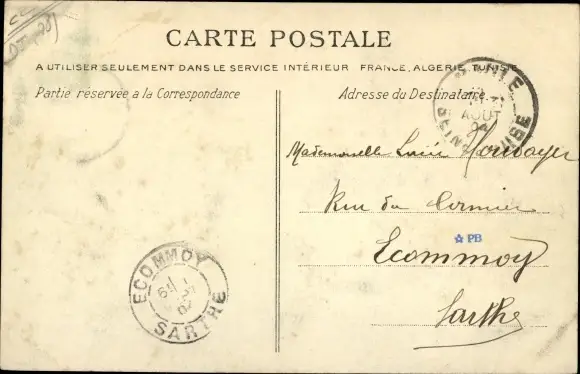 CARTE POSTALE
A UTILISER SEULEMENT DANS LE SERVICE INTÉRIEUR FRANCE, ALGERIE, TUNISIE
Partie réservée a la Correspondance
Adresse du Destinataire
AOUT
Mademoiselle
Rue du Cormier
Ecommoy
PB
Sarthe
ECOMMOY
SARTHE